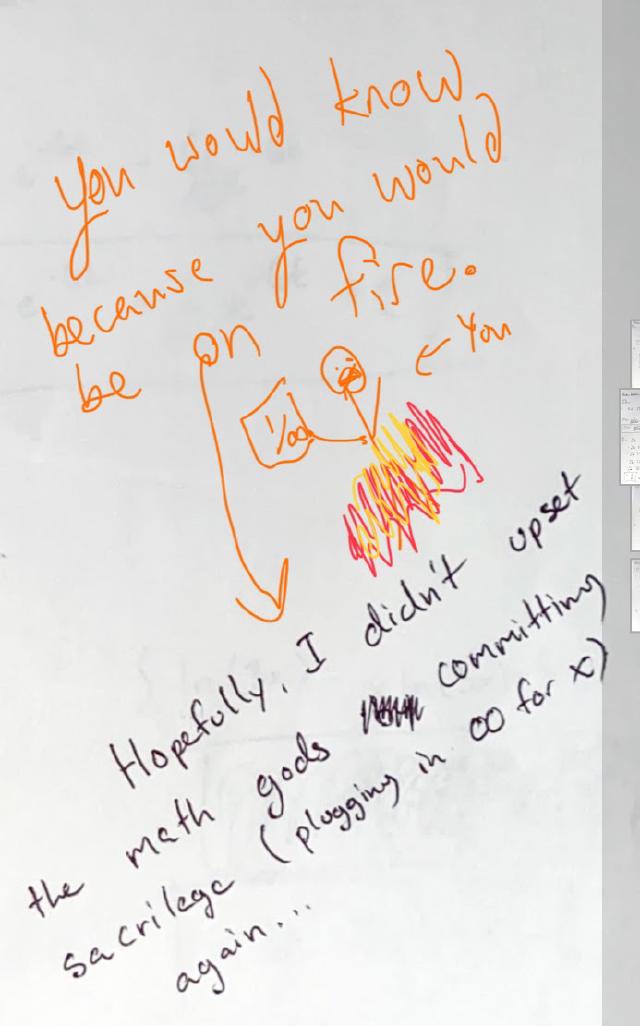 You would know,
because you would
be on fire.
← You
1/∞
Hopefully, I didn't upset
the math gods committing
sacrilege (plugging in ∞ for x)
again...